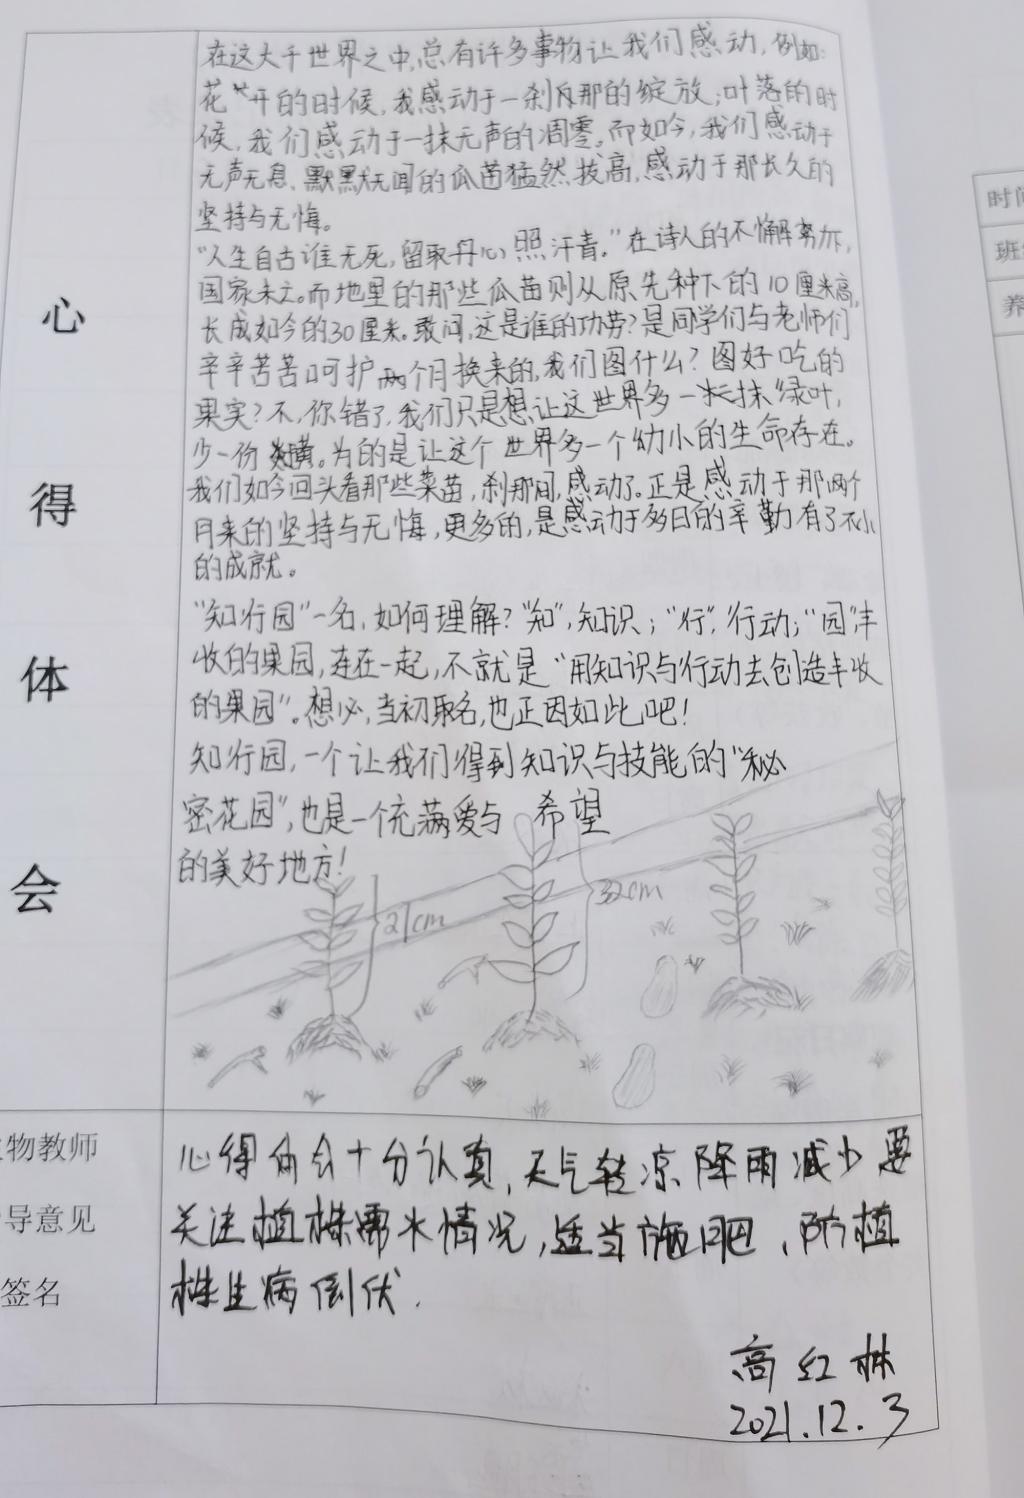 在这大千世界之中,总有许多事物让我们感动,例如:
花开的时候,我感动于一刹那的绽放;叶落的时
候,我们感动于一抹无声的凋零。而如今,我们感动于
无声无息、默默无闻的瓜苗猛然拔高,感动于那长久的
坚持与无悔。
“人生自古谁无死,留取丹心照汗青。”在诗人的不懈努力,
国家未亡。而地里的那些瓜苗则从原先种下的10厘米高,
长成如今的30厘米。敢问,这是谁的功劳?是同学们与老师们
辛辛苦苦呵护两个月换来的,我们图什么?图好吃的
果实?不,你错了,我们只是想让这世界多一抹绿叶,
少一份 。为的是让这个世界多一个幼小的生命存在。
我们如今回头看那些菜苗,刹那间,感动了。正是感动于那两个
月来的坚持与无悔,更多的,是感动于多日的辛勤有了不小
的成就。
“知行园”一名,如何理解?“知”,知识;“行”,行动;“园”,丰
收的果园,连在一起,不就是“用知识与行动去创造丰收
的果园”。想必,当初取名,也正因如此吧!
知行园,一个让我们得到知识与技能的“秘
密花园”,也是一个充满爱与希望
的美好地方!
21cm
32cm
心
得
体
会
物教师
导意见
签名
心得体会十分认真,天气转凉降雨减少要
关注植株需水情况,适当施肥、防植
株生病倒伏.
高红林
2021.12.3
时间
班
养